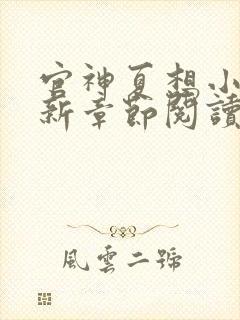 官神夏想小
新章節閱讀
風雲二號